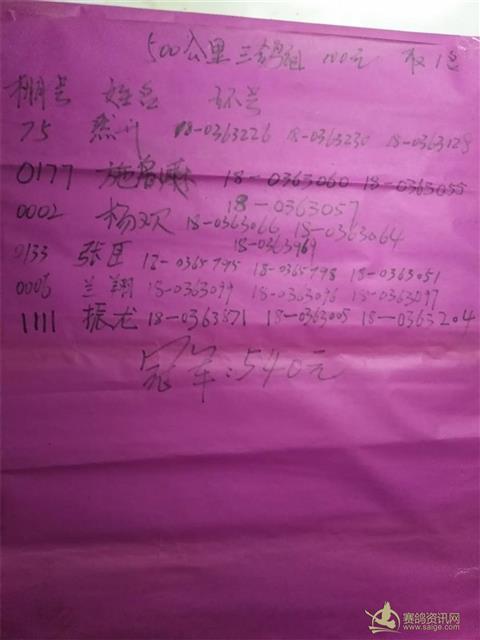 500公里 三鸽组 100元 取1名
棚号 姓名 环号
75 18-0363226 18-0363230 18-0363128
0177 施 18-0363060 18-0363055
18-0363057
0002 杨双 18-0363066 18-0363064
18-0363969
0133 张臣 18-0365795 18-0365798 18-0363051
0006 兰翔 18-0363099 18-0363096 18-0363097
1111 振龙 18-0363871 18-0363005 18-0363204
冠军:540元
赛鸽资讯网
www.saige.com